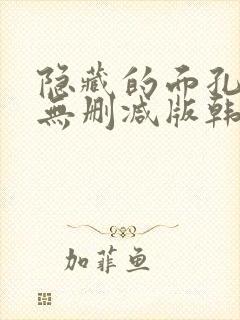 隐藏的面孔
無删减版韩
加菲鱼